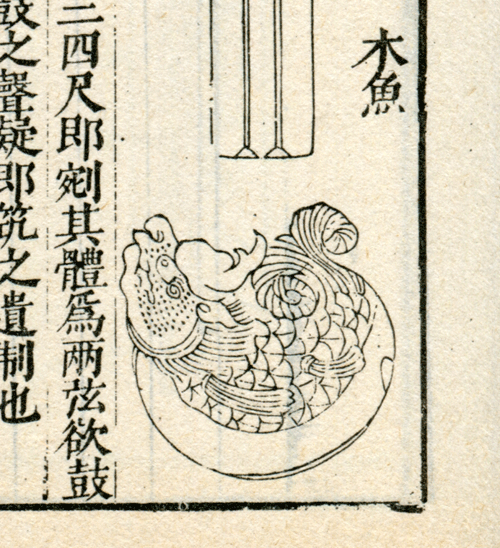 木魚
三四尺即剜其體爲两弦欲鼓
鼓之聲疑即筑之遺制也